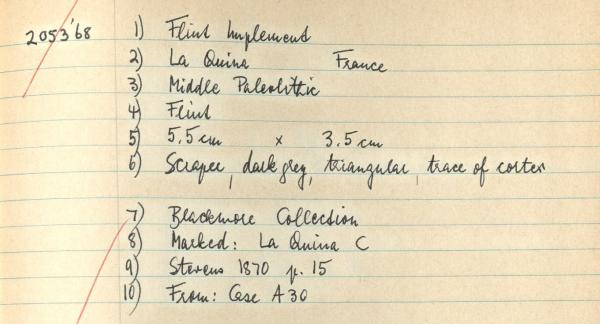 2053'68 1) Flint Implement
2) La Quina France
3) Middle Paleolithic
4) Flint
5) 5.5cm x 3.5cm
6) Scraper, dark grey, triangular, trace of cortex
7) Blackmore Collection
8) Marked: La Quina C
9) Stevens 1870 p. 15
10) From: Case A30